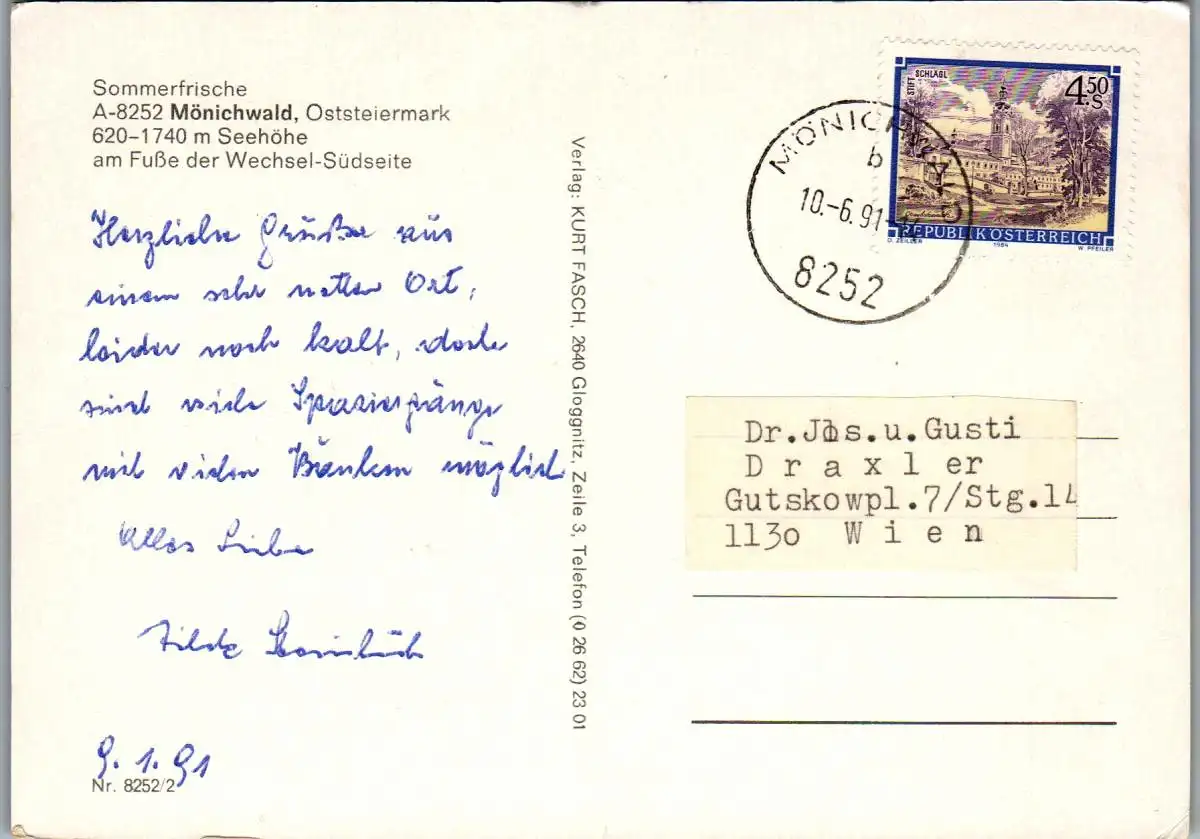 Sommerfrische
A-8252 Mönichwald, Oststeiermark
620–1740 m Seehöhe
am Fuße der Wechsel-Südseite
Herzliche Grüße aus
einem sehr netten Ort,
leider noch kalt, doch
sind viele Spaziergänge
mit vielen Bänken möglich
Alles Liebe
9.1.91
Nr. 8252/2
Verlag: KURT FASCH, 2640 Gloggnitz, Zeile 3, Telefon (0 26 62) 23 01
MÖNICHWALD
b
10.-6.91-
8252
STIFT SCHLÄGL
4.50 S
REPUBLIK ÖSTERREICH
O. ZEILLER 1984 W. PFEILER
Dr.Jos.u.Gusti
D r a x l e r
Gutskowpl.7/Stg.14
1130 W i e n